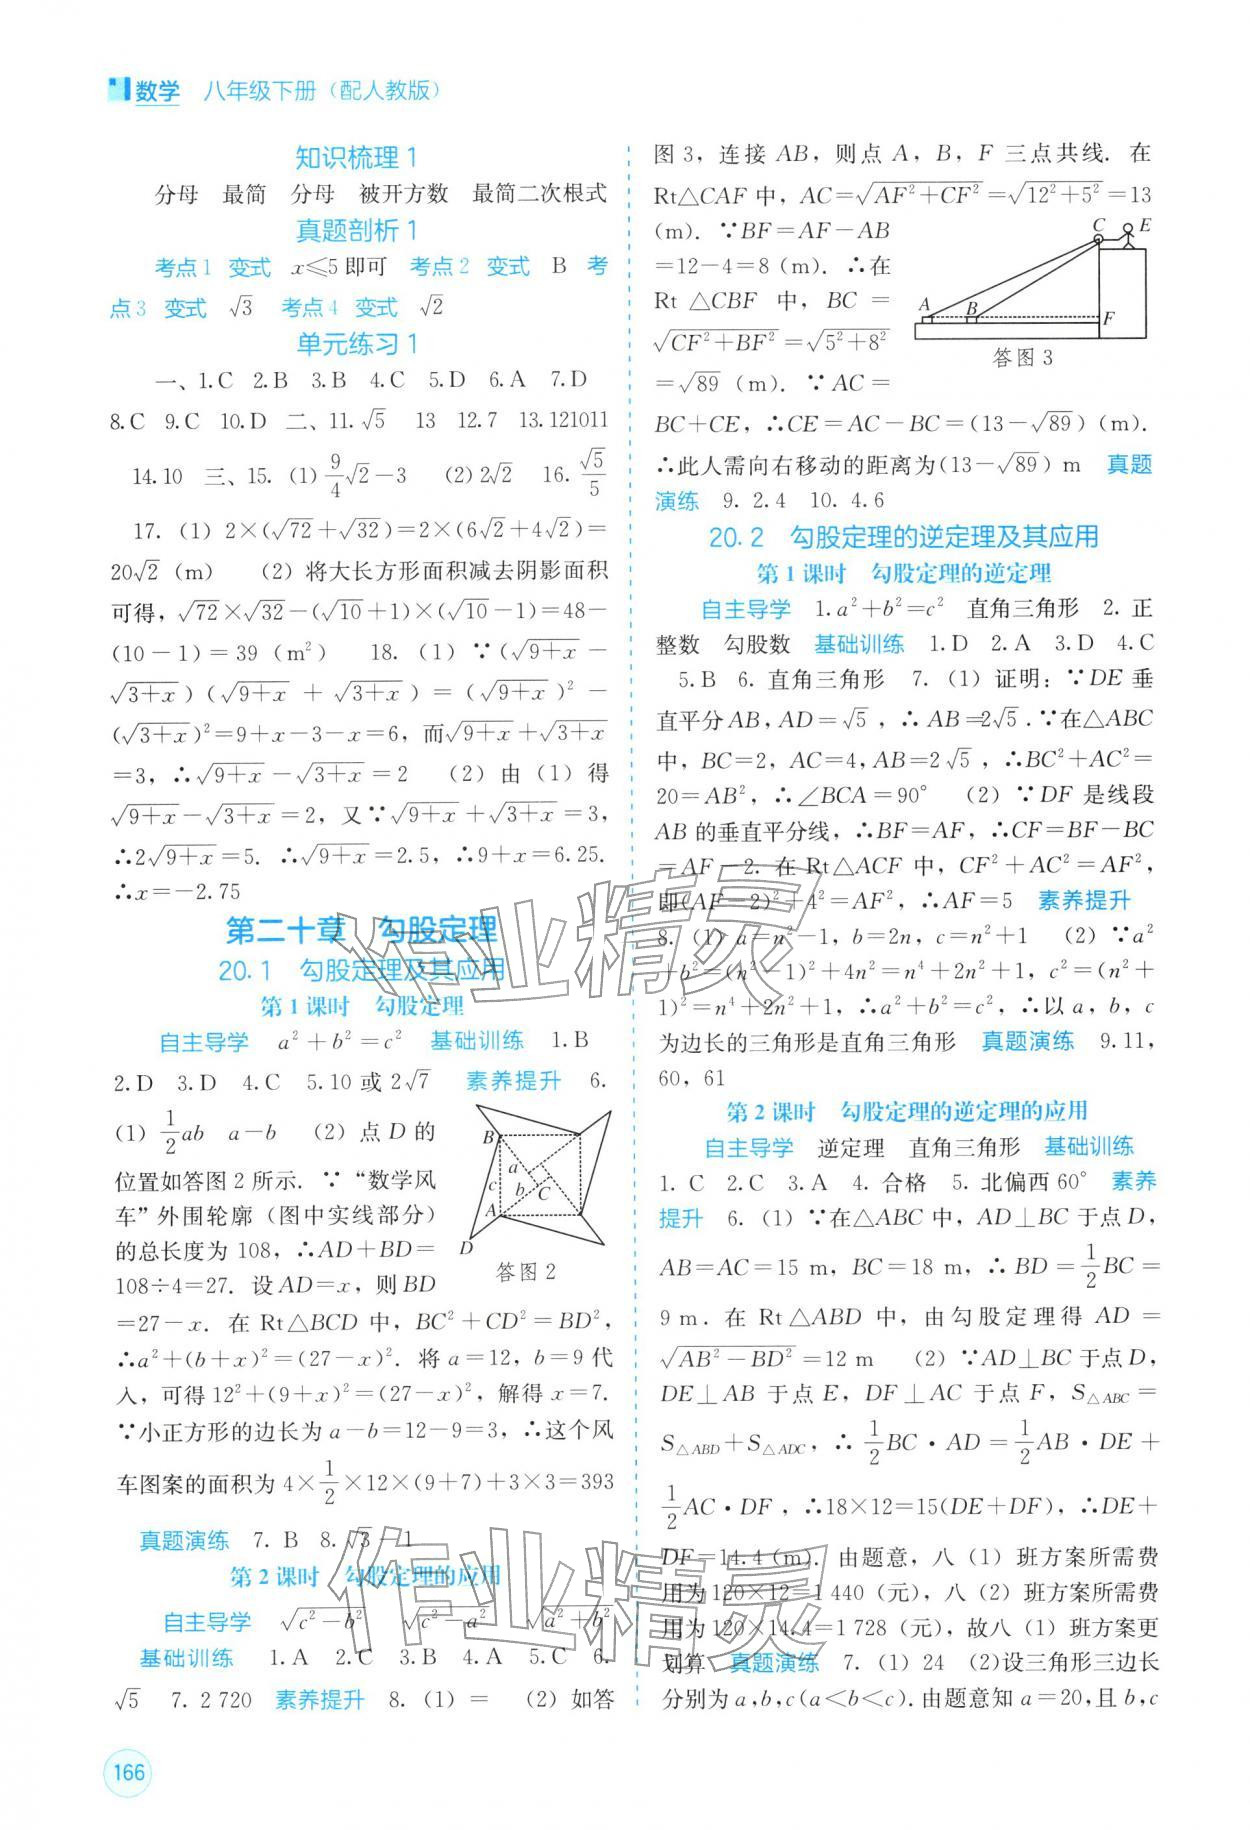 数学 八年级下册（配人教版）
知识梳理 1
分母 最简 分母 被开方数 最简二次根式
真题剖析 1
考点1 变式 x≤5即可 考点2 变式 B 考
点3 变式 √3 考点4 变式 √2
单元练习 1
一、1.C 2.B 3.B 4.C 5.D 6.A 7.D
8.C 9.C 10.D 二、11.√5 13 12.7 13.121011
14.10 三、15.(1) 9/4 √2－3 (2) 2√2 16. √5/5
17.(1) 2×(√72＋√32)＝2×(6√2＋4√2)＝
20√2 (m) (2) 将大长方形面积减去阴影面积
可得，√72×√32－(√10＋1)×(√10－1)＝48－
(10－1)＝39 (m²) 18.(1) ∵(√(9＋x)－
√(3＋x))(√(9＋x)＋√(3＋x))＝(√(9＋x))²－
(√(3＋x))²＝9＋x－3－x＝6，而√(9＋x)＋√(3＋x)
＝3，∴√(9＋x)－√(3＋x)＝2 (2) 由(1)得
√(9＋x)－√(3＋x)＝2，又∵√(9＋x)＋√(3＋x)＝3，
∴2√(9＋x)＝5. ∴√(9＋x)＝2.5，∴9＋x＝6.25.
∴x＝－2.75
第二十章 勾股定理
20.1 勾股定理及其应用
第 1 课时 勾股定理
自主导学 a²＋b²＝c² 基础训练 1.B
2.D 3.D 4.C 5.10 或 2√7 素养提升 6.
(1) 1/2 ab a－b (2) 点 D 的
位置如答图 2 所示. ∵“数学风
车”外围轮廓（图中实线部分）
的总长度为 108，∴AD＋BD＝
108÷4＝27. 设 AD＝x，则 BD
B
a
c
b
C
A
D
答图 2
＝27－x. 在 Rt△BCD 中，BC²＋CD²＝BD²，
∴a²＋(b＋x)²＝(27－x)². 将 a＝12，b＝9 代
入，可得 12²＋(9＋x)²＝(27－x)²，解得 x＝7.
∵小正方形的边长为 a－b＝12－9＝3，∴这个风
车图案的面积为 4×1/2×12×(9＋7)＋3×3＝393
真题演练 7. B 8.√3－1
第 2 课时 勾股定理的应用
自主导学 √(c²－b²) √(c²－a²) √(a²＋b²)
基础训练 1.A 2.C 3.B 4.A 5.C 6.
√5 7. 2 720 素养提升 8.(1) ＝ (2) 如答
图 3，连接 AB，则点 A，B，F 三点共线. 在
Rt△CAF 中，AC＝√(AF²＋CF²)＝√(12²＋5²)＝13
(m). ∵BF＝AF－AB
＝12－4＝8 (m). ∴在
Rt △CBF 中，BC＝
√(CF²＋BF²)＝√(5²＋8²)
＝√89 (m). ∵AC＝
C
E
A
B
F
答图 3
BC＋CE，∴CE＝AC－BC＝(13－√89)(m).
∴此人需向右移动的距离为(13－√89) m 真题
演练 9. 2.4 10. 4.6
20.2 勾股定理的逆定理及其应用
第 1 课时 勾股定理的逆定理
自主导学 1.a²＋b²＝c² 直角三角形 2. 正
整数 勾股数 基础训练 1.D 2.A 3.D 4.C
5.B 6. 直角三角形 7.(1) 证明：∵DE 垂
直平分 AB，AD＝√5，∴AB＝2√5.∵在△ABC
中，BC＝2，AC＝4，AB＝2√5，∴BC²＋AC²＝
20＝AB²，∴∠BCA＝90° (2) ∵DF 是线段
AB 的垂直平分线，∴BF＝AF，∴CF＝BF－BC
＝AF－2. 在 Rt△ACF 中，CF²＋AC²＝AF²，
即(AF－2)²＋4²＝AF²，∴AF＝5 素养提升
8.(1) a＝n²－1，b＝2n，c＝n²＋1 (2) ∵a²
＋b²＝(n²－1)²＋4n²＝n⁴＋2n²＋1，c²＝(n²＋
1)²＝n⁴＋2n²＋1，∴a²＋b²＝c²，∴以 a，b，c
为边长的三角形是直角三角形 真题演练 9.11，
60，61
第 2 课时 勾股定理的逆定理的应用
自主导学 逆定理 直角三角形 基础训练
1. C 2.C 3.A 4. 合格 5. 北偏西 60° 素养
提升 6.(1) ∵在△ABC 中，AD⊥BC 于点 D，
AB＝AC＝15 m，BC＝18 m，∴BD＝1/2 BC＝
9 m. 在 Rt△ABD 中，由勾股定理得 AD＝
√(AB²－BD²)＝12 m (2) ∵AD⊥BC 于点 D，
DE⊥AB 于点 E，DF⊥AC 于点 F，S△ABC＝
S△ABD＋S△ADC，∴1/2 BC·AD＝1/2 AB·DE＋
1/2 AC·DF，∴18×12＝15(DE＋DF)，∴DE＋
DF＝14.4 (m). 由题意，八（1）班方案所需费
用为 120×12＝1 440（元），八（2）班方案所需费
用为 120×14.4＝1 728（元），故八（1）班方案更
划算 真题演练 7.(1) 24 (2)设三角形三边长
分别为 a,b,c(a＜b＜c).由题意知 a＝20,且 b,c
166
作业精灵
作业精灵